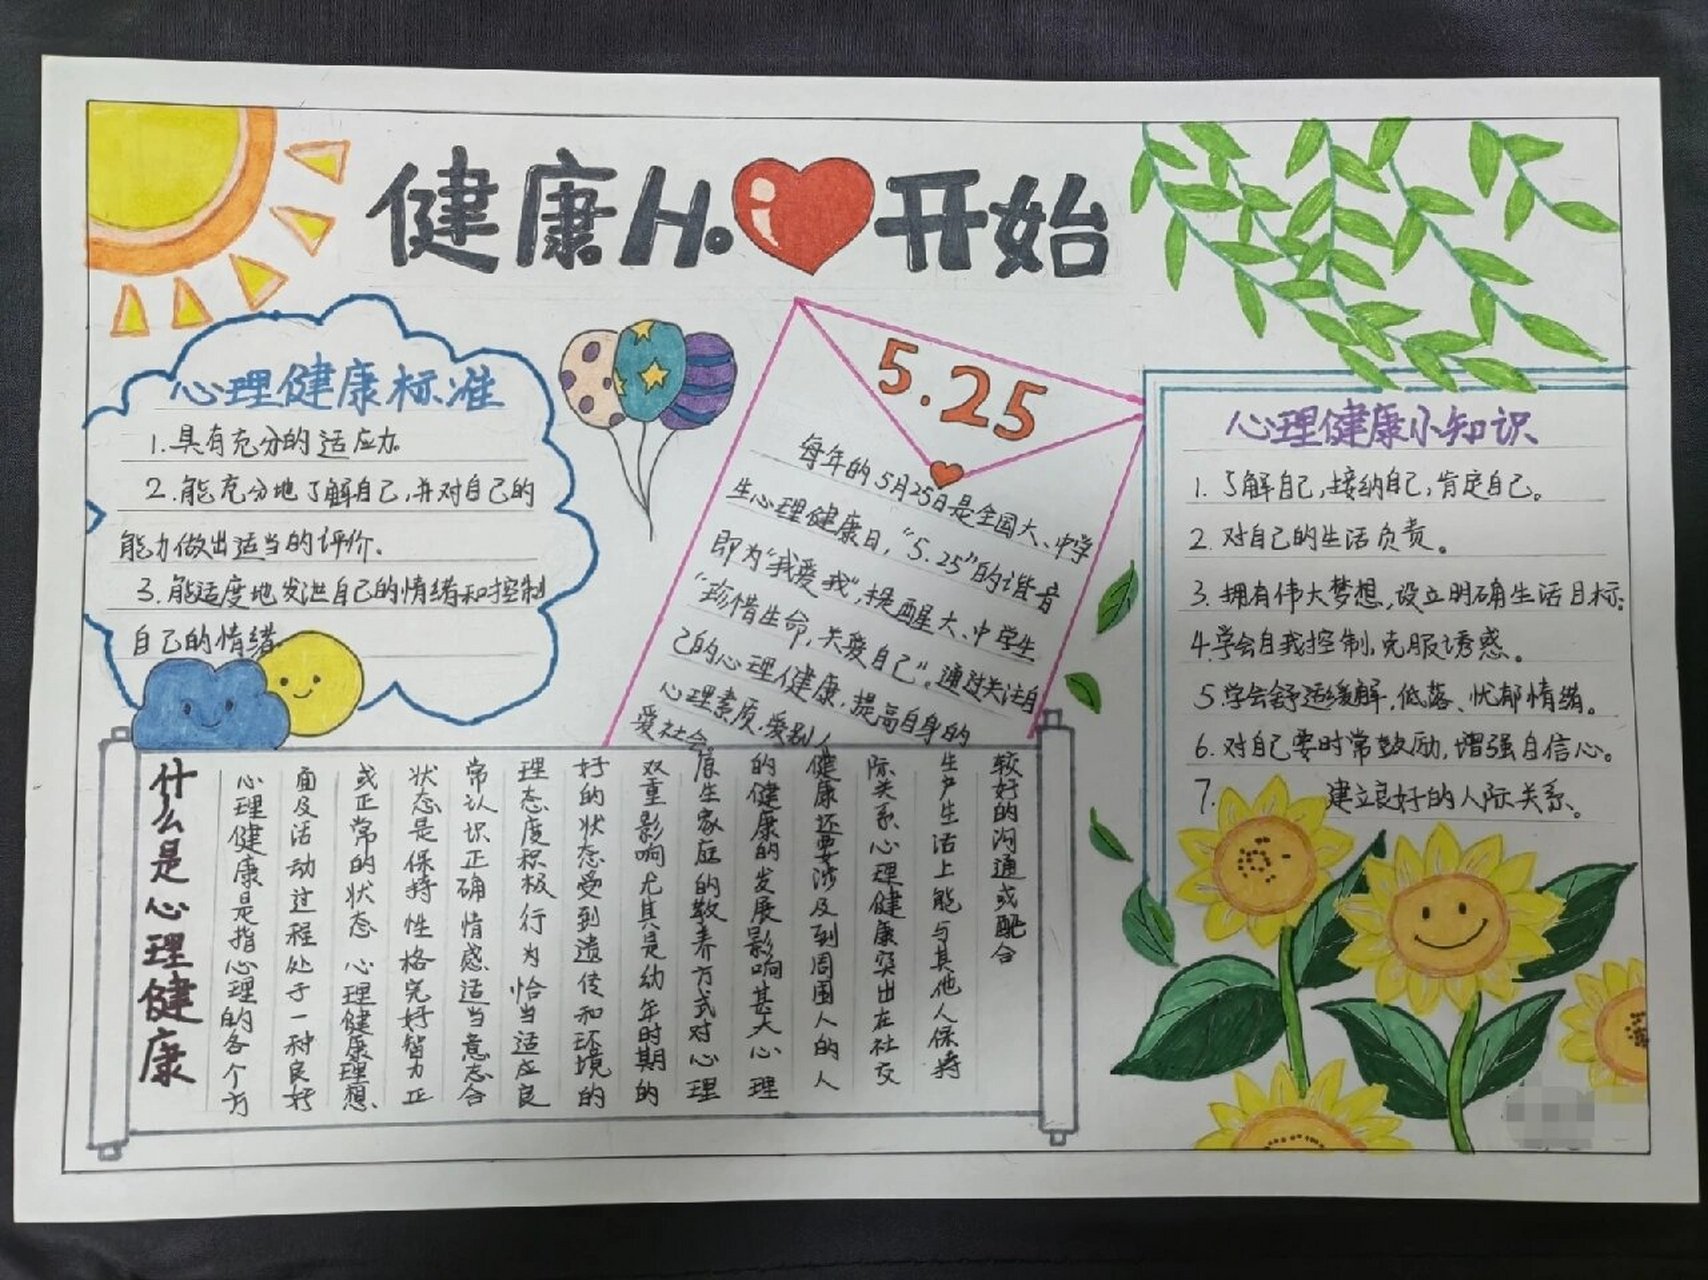 健康从❤开始
心理健康标准
1.具有充分的适应力。
2.能充分地了解自己,并对自己的
能力做出适当的评价.
3.能适度地发泄自己的情绪和控制
自己的情绪
5.25
每年的5月25日是全国大、中学
生心理健康日,“5.25”的谐音
即为“我爱我”,提醒大、中学生
“珍惜生命,关爱自己”。通过关注自
己的心理健康,提高自身的
心理素质.爱别人
爱社会.
心理健康小知识
1. 了解自己,接纳自己,肯定自己。
2. 对自己的生活负责。
3. 拥有伟大梦想,设立明确生活目标;
4.学会自我控制,克服诱惑。
5.学会舒适缓解,低落、忧郁情绪。
6. 对自己要时常鼓励,增强自信心。
7. 建立良好的人际关系、
什么是心理健康
心理健康是指心理的各个方
面及活动过程处于一种良好
或正常的状态 心理健康理想
状态是保持性格完好智力正
常认识正确情感适当意志合
理态度积极行为恰当适应良
好的状态受到遗传和环境的
双重影响尤其是幼年时期的
原生家庭的教养方式对心理
的健康的发展影响甚大心理
健康还要涉及到周围人的人
际关系心理健康突出在社交
生产生活上能与其他人保持
较好的沟通或配合